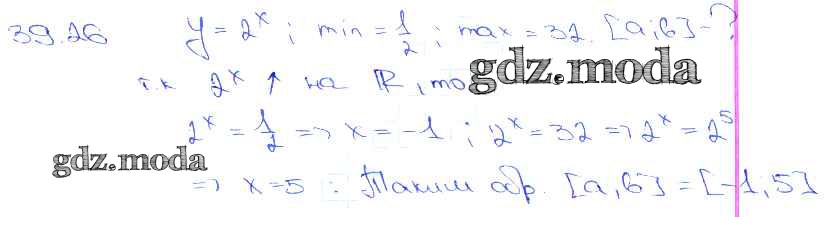 39.26 y = 2^x ; min = 1/2 ; max = 32. [a; b] - ?
т.к 2^x ↑ на ℝ, то gdz.moda
2^x = 1/2 => x = -1 ; 2^x = 32 => 2^x = 2^5
gdz.moda
=> x = 5 : Таким обр. [a, b] = [-1; 5]